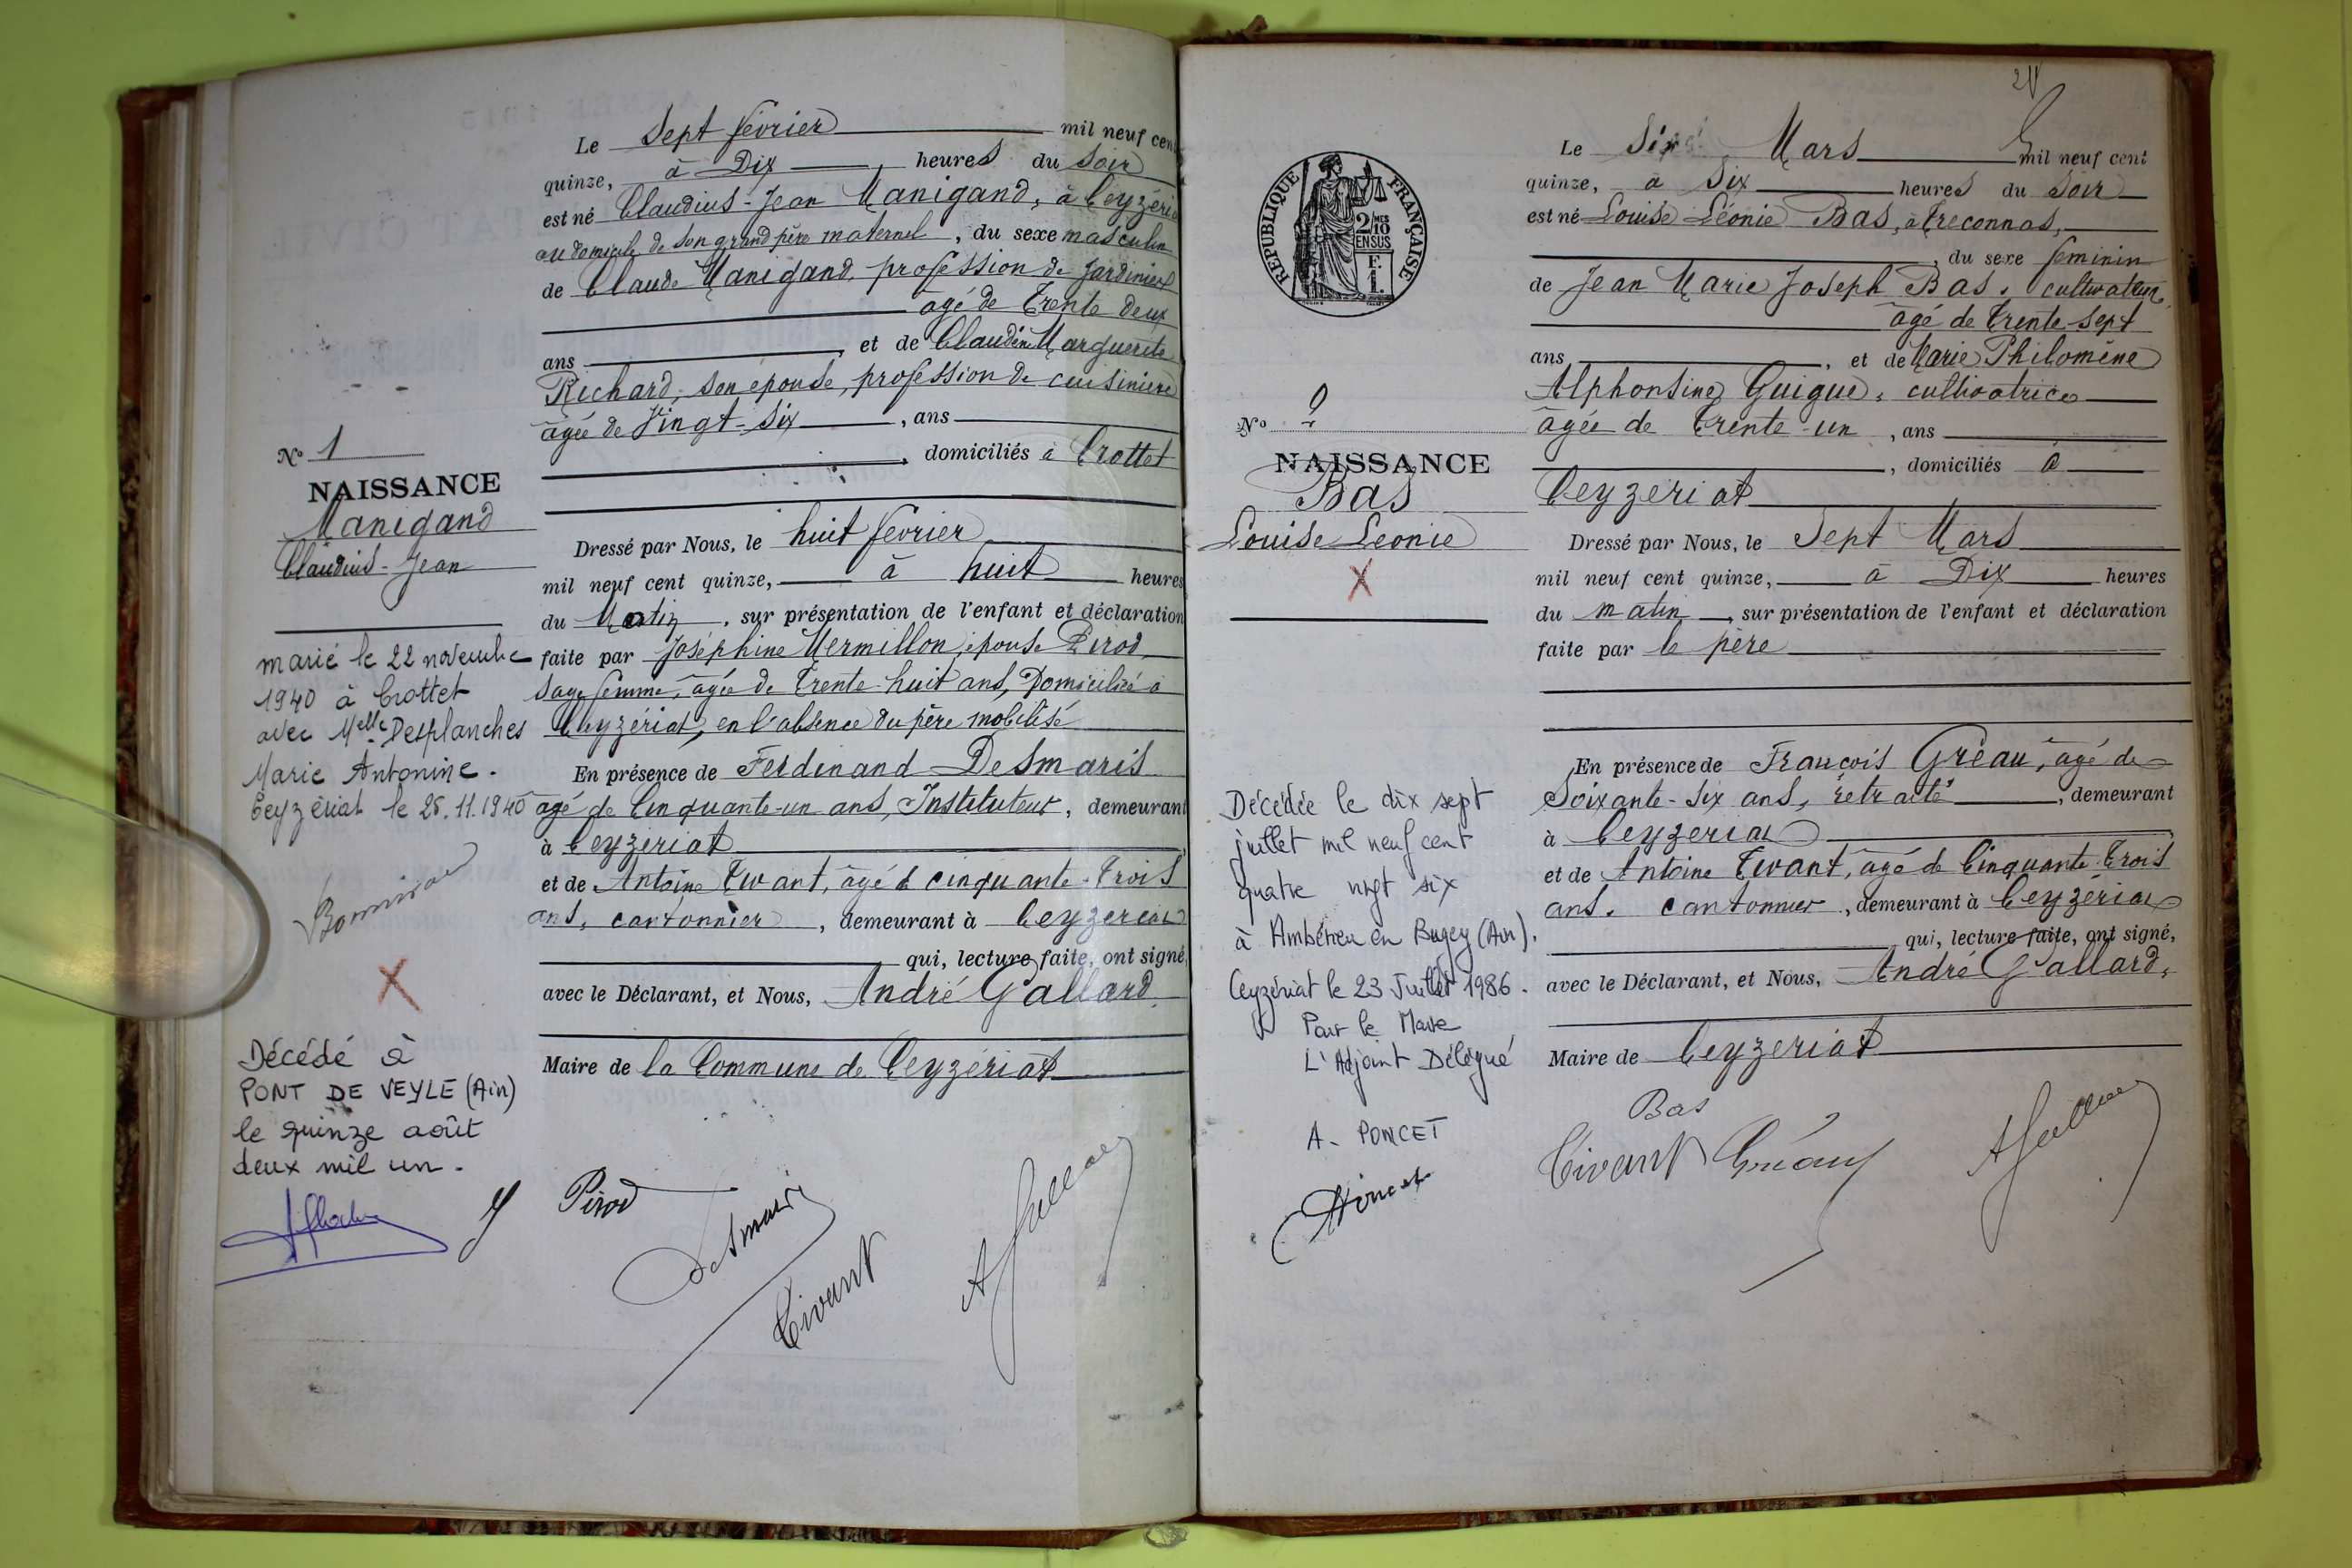 Le Sept février mil neuf cent
quinze, à Dix, heures du Soir
est né Claudius-Jean Manigand, à Ceyzéria
au domicile de son grand père maternel, du sexe masculin
de Claude Manigand, profession de Jardinier
âgé de Trente deux
ans, et de Claudine Marguerite
Richard, son épouse, profession de cuisinière
âgée de Vingt-Six, ans
, domiciliés à Crottet
Nº 1
NAISSANCE
Manigand
Claudius-Jean
Dressé par Nous, le huit février
mil neuf cent quinze, à huit heures
du Matin, sur présentation de l'enfant et déclaration
faite par Joséphine Mermillon, épouse Pirod
Sage femme, âgée de Trente-huit ans, Domiciliée à
Ceyzériat, en l'absence du père mobilisé
En présence de Ferdinand Desmaris
âgé de Cinquante-un ans, Instituteur, demeurant
à Ceyzériat
et de Antoine Tivant, âgé de cinquante-Trois
ans, cantonnier, demeurant à Ceyzériat
qui, lecture faite, ont signé
avec le Déclarant, et Nous, André Gallard
Maire de la Commune de Ceyzériat
marié le 22 novembre
1940 à Crottet
avec Melle Desplanches
Marie Antonine.
Ceyzériat le 25.11.1940
Décédé à
PONT DE VEYLE (Ain)
le quinze août
deux mil un.
Pirod
Desmaris
Tivant
A Gallard
RÉPUBLIQUE FRANÇAISE
2/10 MES
EN SUS
F.
1.
Le Six Mars mil neuf cent
quinze, à Six heures du Soir
est né Louise Léonie Bas, à Treconnas,
, du sexe féminin
de Jean Marie Joseph Bas, cultivateur,
âgé de Trente-sept
ans, et de Marie Philomène
Alphonsine Guigue, cultivatrice
âgée de Trente-un, ans
, domiciliés à
Ceyzériat
Nº 2
NAISSANCE
Bas
Louise Léonie
Dressé par Nous, le Sept Mars
mil neuf cent quinze, à Dix heures
du matin, sur présentation de l'enfant et déclaration
faite par le père
En présence de François Gréau, âgé de
Soixante-Six ans, retraité, demeurant
à Ceyzériat
et de Antoine Tivant, âgé de Cinquante-Trois
ans, cantonnier, demeurant à Ceyzériat
qui, lecture faite, ont signé,
avec le Déclarant, et Nous, André Gallard,
Maire de Ceyzériat
Décédée le dix sept
juillet mil neuf cent
quatre vingt six
à Ambérieu en Bugey (Ain).
Ceyzériat le 23 Juillet 1986.
Pour le Maire
L'Adjoint Délégué
A. PONCET
Bas
Tivant Gréau
A Gallard